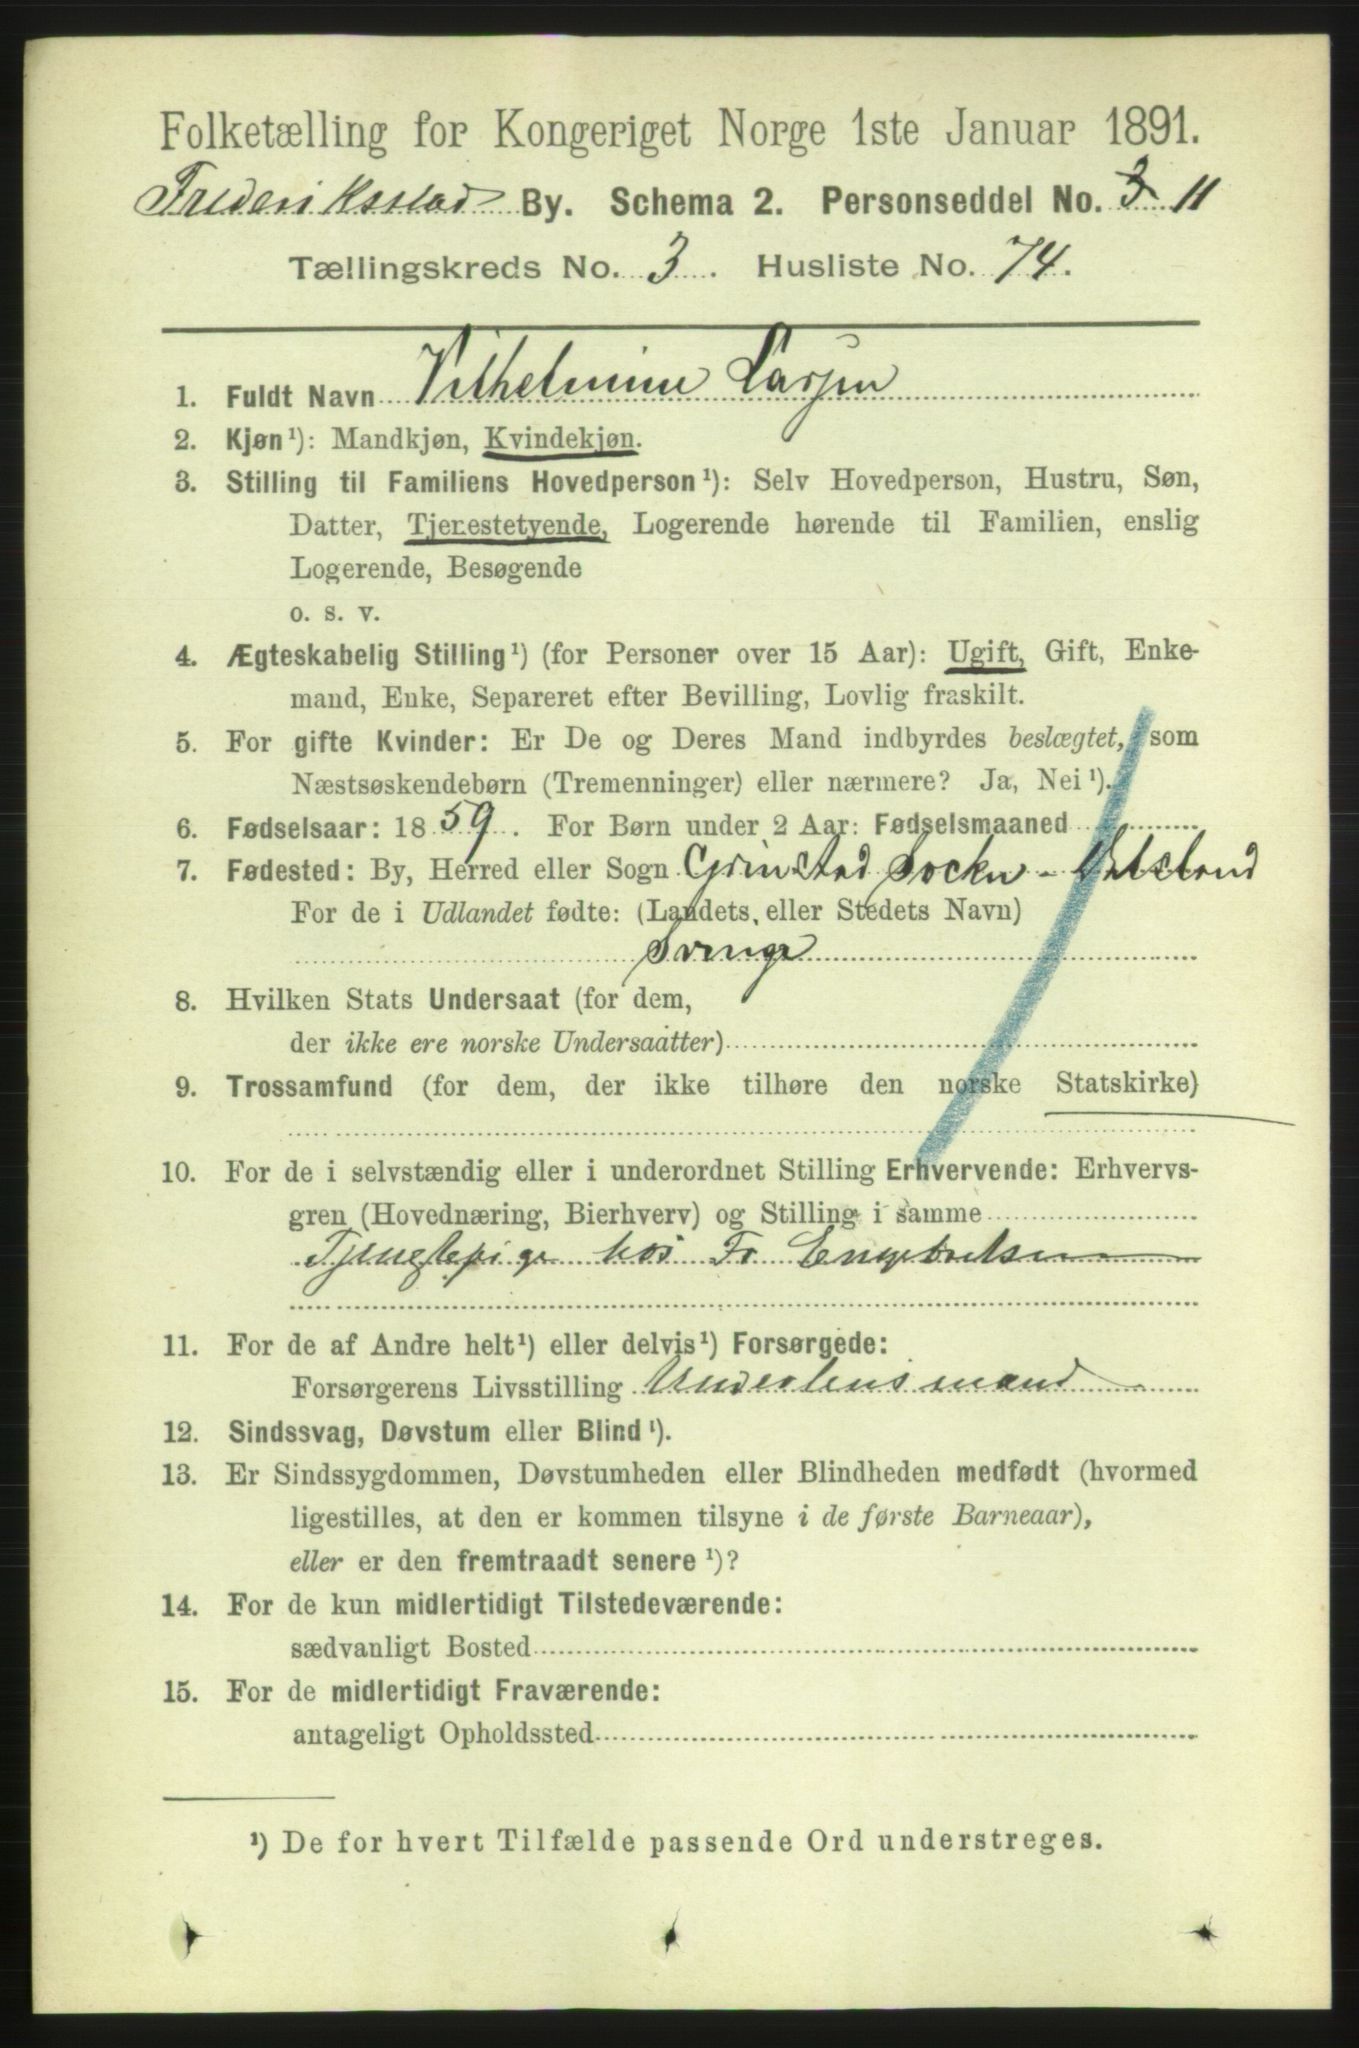 Folketælling for Kongeriget Norge 1ste Januar 1891.
Frederiksstad By. Schema 2. Personseddel No. 3 11
Tællingskreds No. 3. Husliste No. 74.
1. Fuldt Navn Vilhelmine Larsen
2. Kjøn¹): Mandkjøn, Kvindekjøn.
3. Stilling til Familiens Hovedperson¹): Selv Hovedperson, Hustru, Søn,
Datter, Tjenestetyende, Logerende hørende til Familien, enslig
Logerende, Besøgende
o. s. v.
4. Ægteskabelig Stilling¹) (for Personer over 15 Aar): Ugift, Gift, Enke-
mand, Enke, Separeret efter Bevilling, Lovlig fraskilt.
5. For gifte Kvinder: Er De og Deres Mand indbyrdes beslægtet, som
Næstsøskendebørn (Tremenninger) eller nærmere? Ja, Nei¹).
6. Fødselsaar: 1859. For Børn under 2 Aar: Fødselsmaaned
7. Fødested: By, Herred eller Sogn Grinstad Sockn - Dalsland
For de i Udlandet fødte: (Landets eller Stedets Navn)
Sverige
8. Hvilken Stats Undersaat (for dem,
der ikke ere norske Undersaatter)
9. Trossamfund (for dem, der ikke tilhøre den norske Statskirke)
10. For de i selvstændig eller i underordnet Stilling Erhvervende: Erhvervs-
gren (Hovednæring, Bierhverv) og Stilling i samme
hos Fr Engebretsen
11. For de af Andre helt¹) eller delvis¹) Forsørgede:
Forsørgerens Livsstilling
12. Sindssvag, Døvstum eller Blind¹).
13. Er Sindssygdommen, Døvstumheden eller Blindheden medfødt (hvormed
ligestilles, at den er kommen tilsyne i de første Barneaar),
eller er den fremtraadt senere¹)?
14. For de kun midlertidigt Tilstedeværende:
sædvanligt Bosted
15. For de midlertidigt Fraværende:
antageligt Opholdssted
¹) De for hvert Tilfælde passende Ord understreges.